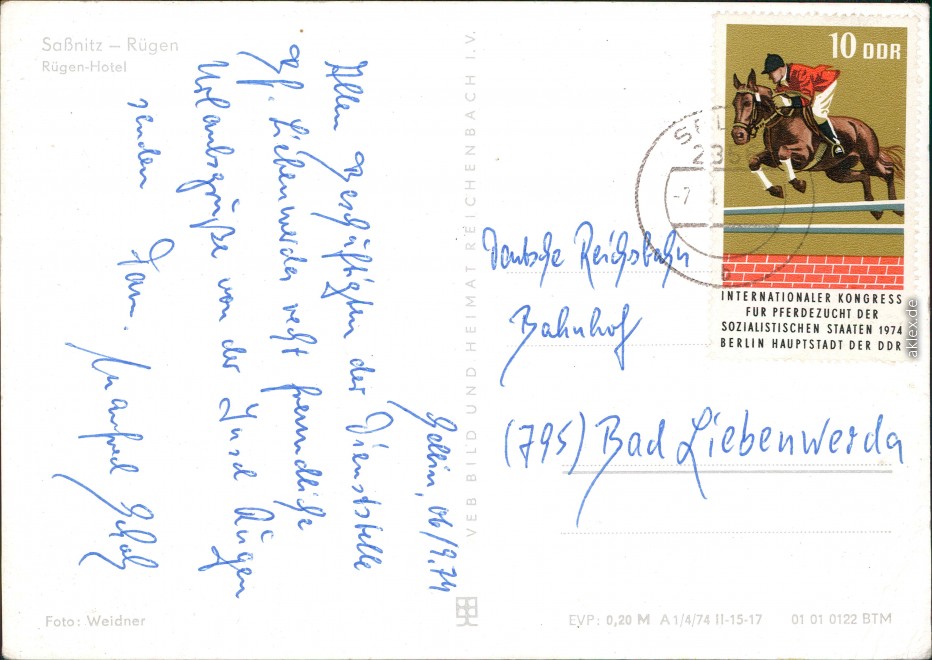 Saßnitz – Rügen
Rügen-Hotel
06/9.74
Allen Beschäftigten der Dienststelle
Bf. Liebenwerda recht freundliche
Urlaubsgrüße von der Insel Rügen
senden Fam. Manfred Scholz
Foto: Weidner
VEB BILD UND HEIMAT REICHENBACH I. V.
10 DDR
INTERNATIONALER KONGRESS
FÜR PFERDEZUCHT DER
SOZIALISTISCHEN STAATEN 1974
BERLIN HAUPTSTADT DER DDR
-7
b
Deutsche Reichsbahn
Bahnhof
(795) Bad Liebenwerda
EVP: 0,20 M A 1/4/74 II-15-17 01 01 0122 BTM
aklex.de